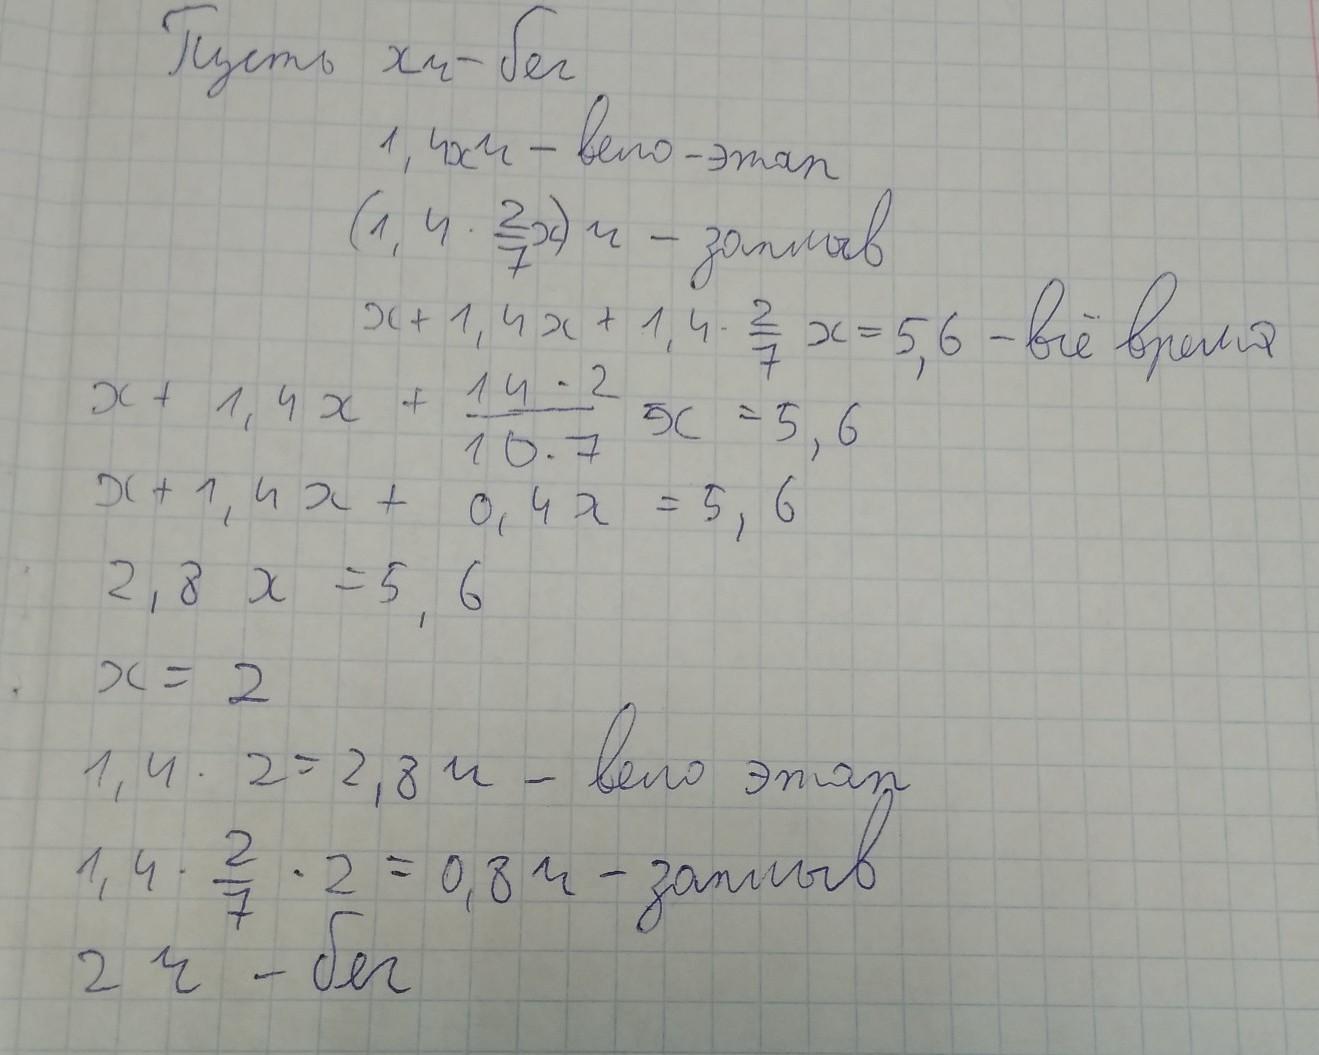 Пусть хч - бег
1,4хч - вело-этап
(1,4 · 2/7 х) ч - заплыв
х + 1,4х + 1,4 · 2/7 х = 5,6 - всё время
х + 1,4х + 14 · 2 / 10 · 7 х = 5,6
х + 1,4х + 0,4х = 5,6
2,8 х = 5,6
х = 2
1,4 · 2 = 2,8 ч - вело этап
1,4 · 2/7 · 2 = 0,8 ч - заплыв
2 ч - бег